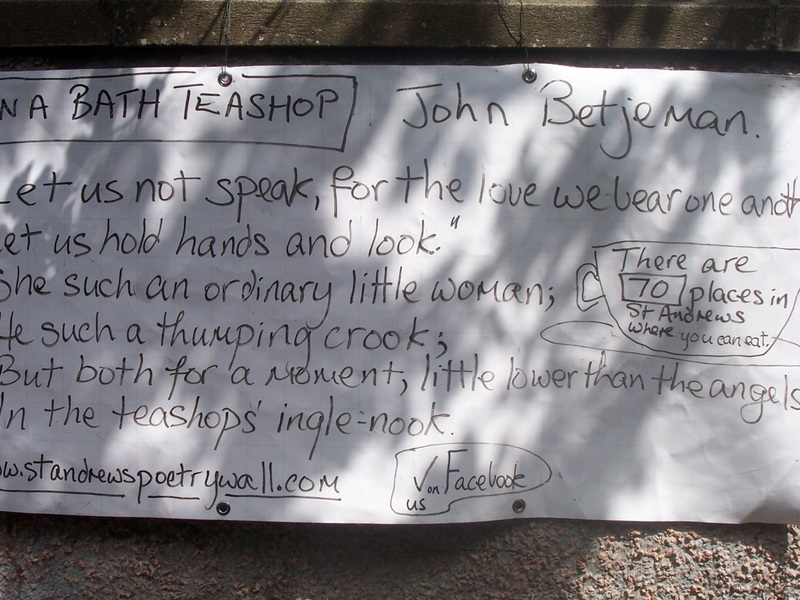 N A BATH TEASHOP
John Betjeman.
Let us not speak, for the love we bear one anoth
Let us hold hands and look."
She such an ordinary little woman;
He such a thumping crook;
But both for a moment, little lower than the angels
In the teashops' ingle-nook.
There are
70 places in
St Andrews
where you can eat.
ww.standrewspoetrywall.com
✓ on Facebook
us